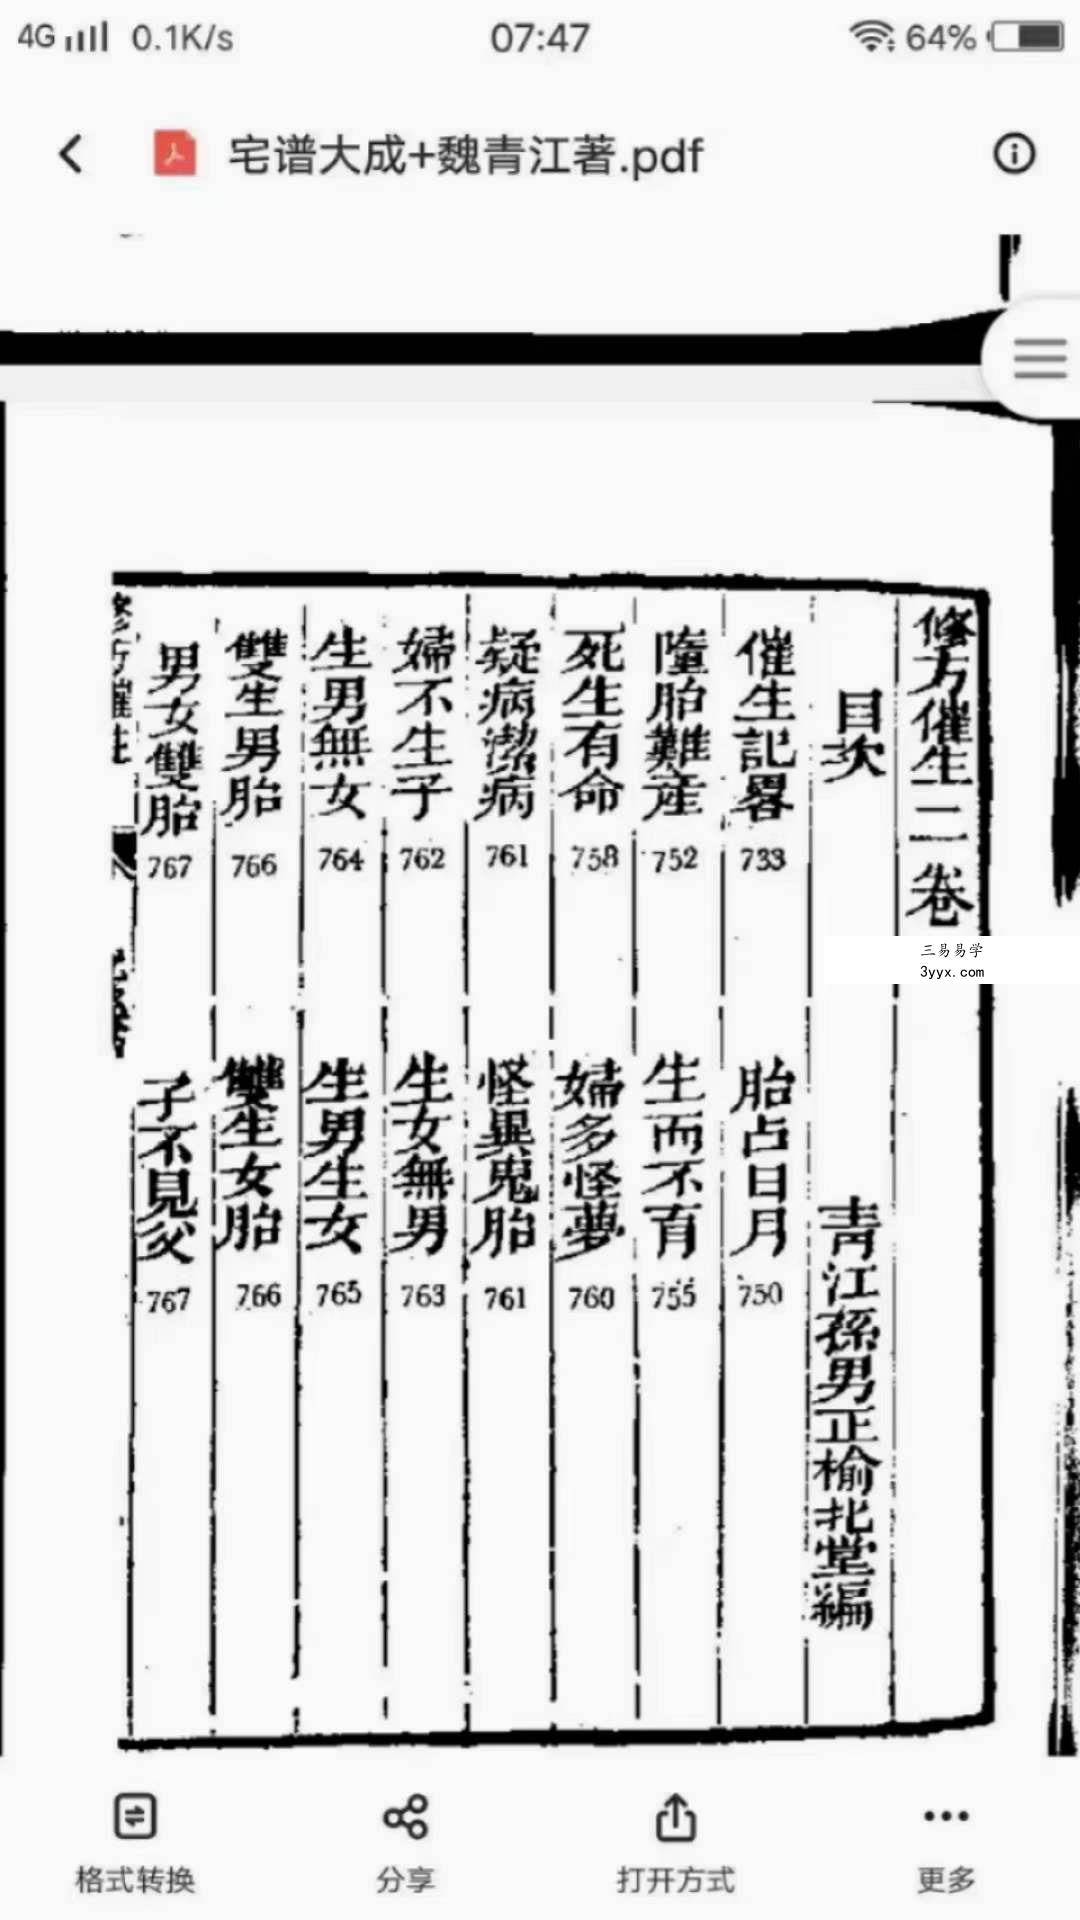 4G 0.1K/s 07:47 64%
宅谱大成+魏青江著.pdf
修方催生二卷
目次
青江孫男正榆北堂編
催生記畧 733
胎占日月 750
墮胎難産 752
生而不育 755
死生有命 758
婦多怪夢 760
疑病潔病 761
怪異鬼胎 761
婦不生子 762
生女無男 763
生男無女 764
生男生女 765
雙生男胎 766
雙生女胎 766
男女雙胎 767
子不見父 767
三易易学
3yyx.com
格式转换
分享
打开方式
更多